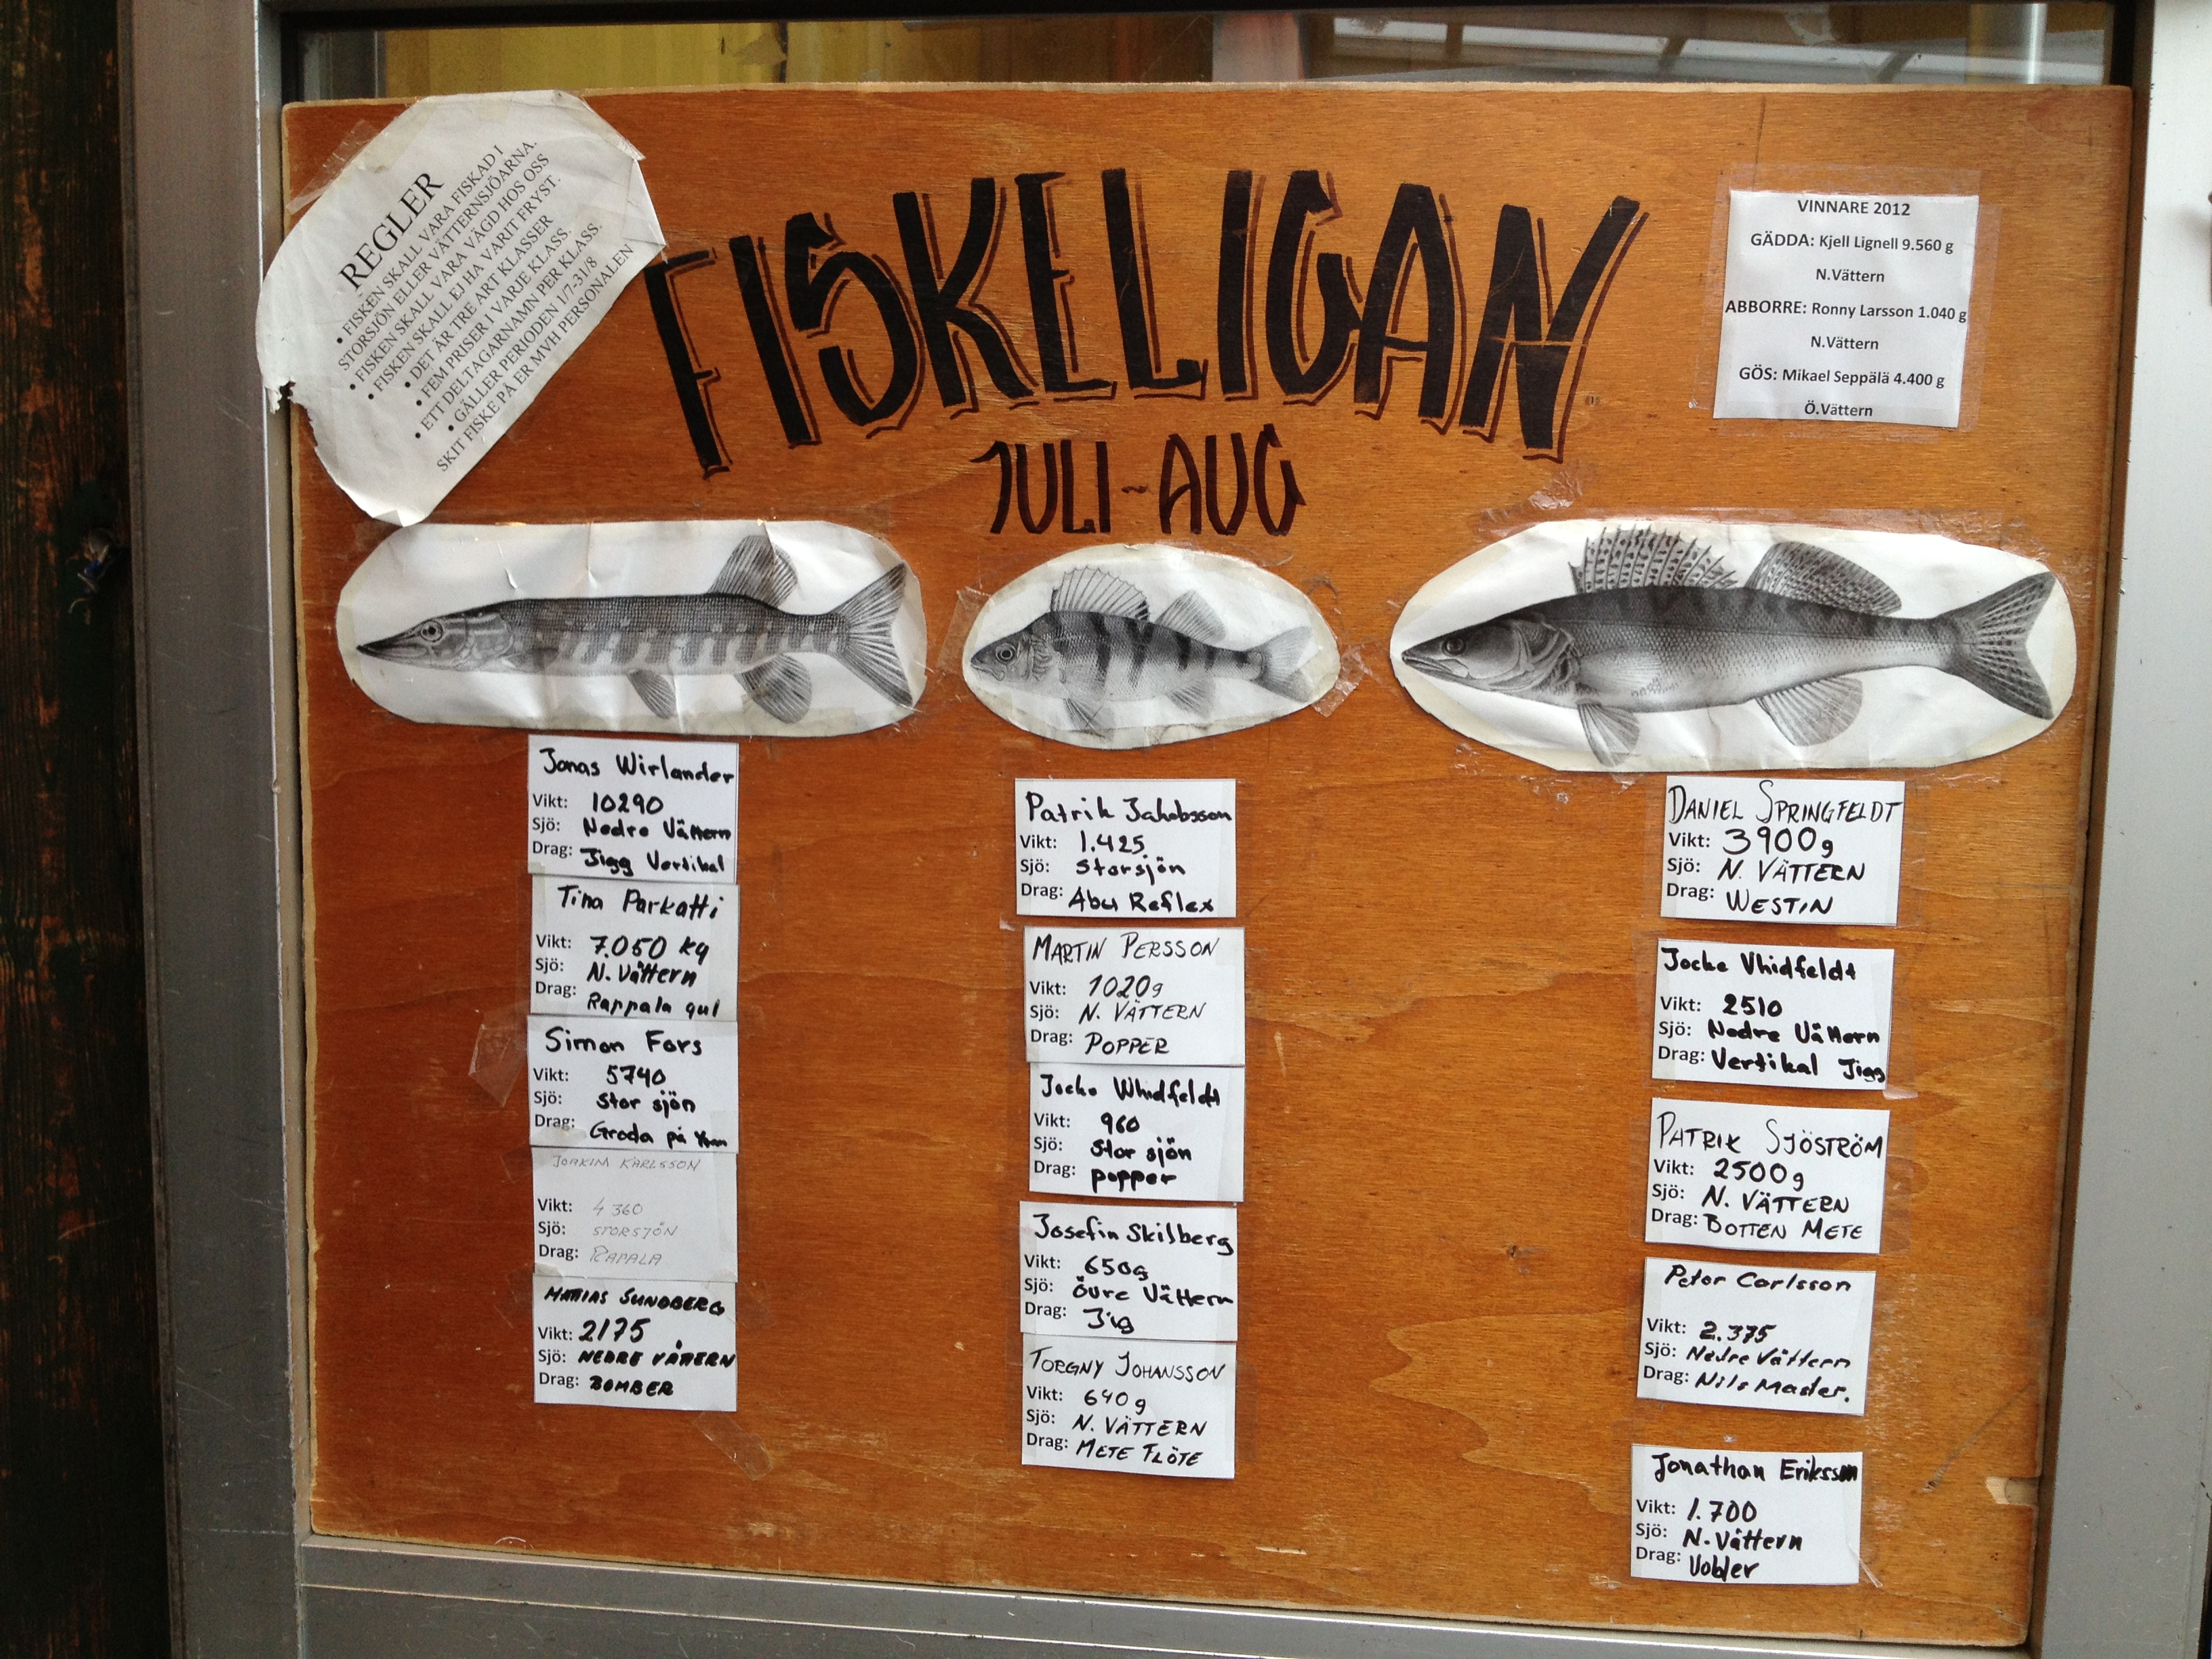 REGLER
• FISKEN SKALL VARA FISKAD I
STORSJÖN ELLER VÄTTERNSJÖARNA.
• FISKEN SKALL VARA VÄGD HOS OSS
• FISKEN SKALL EJ HA VARIT FRYST.
• DET ÄR TRE ART KLASSER
• FEM PRISER I VARJE KLASS.
• ETT DELTAGARNAMN PER KLASS.
• GÄLLER PERIODEN 1/7-31/8
SKIT FISKE PÅ ER MVH PERSONALEN
FISKELIGAN
JULI~AUG
VINNARE 2012
GÄDDA: Kjell Lignell 9.560 g
N.Vättern
ABBORRE: Ronny Larsson 1.040 g
N.Vättern
GÖS: Mikael Seppälä 4.400 g
Ö.Vättern
Jonas Wirlander
Vikt: 10290
Sjö: Nedre Vättern
Drag: Jigg Vertikal
Tina Parkatti
Vikt: 7.050 kg
Sjö: N. Vättern
Drag: Rappala gul
Simon Fors
Vikt: 5740
Sjö: Stor sjön
Drag: Groda på
JOAKIM KARLSSON
Vikt: 4 360
Sjö: STORSJÖN
Drag: RAPALA
MATIAS SUNDBERG
Vikt: 2175
Sjö: NEDRE VÄTTERN
Drag: BOMBER
Patrik Jakobsson
Vikt: 1.425
Sjö: Storsjön
Drag: Abu Reflex
MARTIN PERSSON
Vikt: 1020g
Sjö: N. VÄTTERN
Drag: POPPER
Jocke Whidfeldt
Vikt: 960
Sjö: Stor sjön
Drag: popper
Josefin Skilberg
Vikt: 650g
Sjö: Övre Vättern
Drag: Jig
TORGNY JOHANSSON
Vikt: 640g
Sjö: N. VÄTTERN
Drag: METE FLÖTE
DANIEL SPRINGFELDT
Vikt: 3900g
Sjö: N. VÄTTERN
Drag: WESTIN
Jocke Vhidfeldt
Vikt: 2510
Sjö: Nedre Vättern
Drag: Vertikal Jigg
PATRIK SJÖSTRÖM
Vikt: 2500g
Sjö: N. VÄTTERN
Drag: BOTTEN METE
Peter Carlsson
Vikt: 2.375
Sjö: Nedre Vättern
Drag: Nils Master.
Jonathan Eriksson
Vikt: 1.700
Sjö: N. Vättern
Drag: Vobler